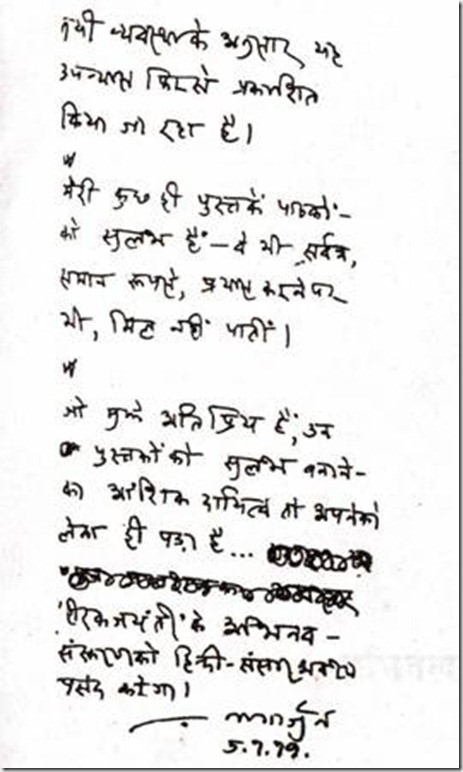 नयी व्यवस्था के अनुसार यह
उपन्यास फिरसे प्रकाशित
किया जा रहा है।
मेरी कुछ ही पुस्तकें पाठकों-
को सुलभ हैं - वे भी सर्वत्र,
समान रूपसे, प्रयास करने पर
भी, मिल नहीं पातीं।
जो मुझे अतिप्रिय हैं, उन
पुस्तकों को सुलभ बनाने-
का आंशिक दायित्व तो अपनेको
लेना ही पड़ा है...
'हीरक जयंती' के अभिनव-
संस्करणको हिन्दी-संसार अवश्य
पसंद करेगा।
नागार्जुन
5.7.79.